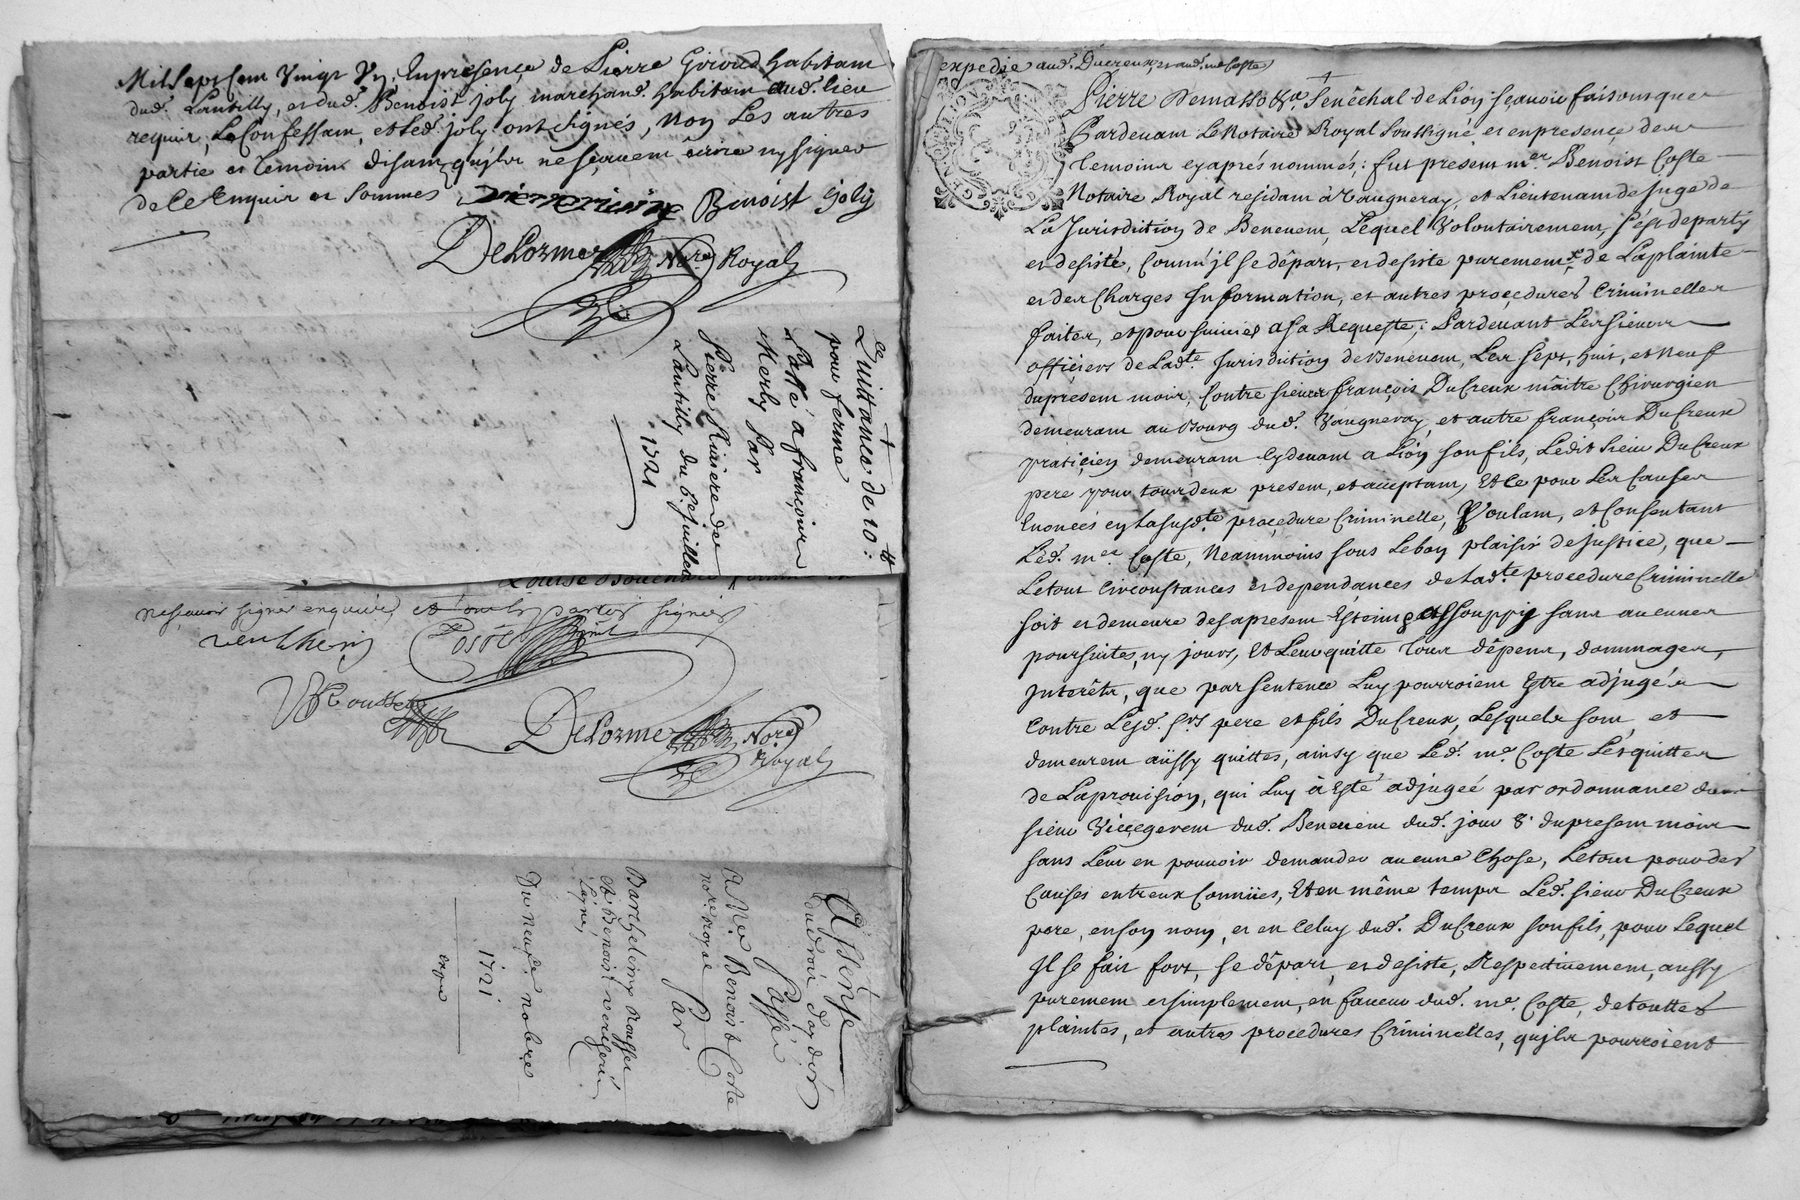 Mil Sept Cent Vingt Un, En presence de Pierre Giroud habitant
dud. Lantilly, et dud. Benoist joly marchand habitant aud. lieu
requis, Le Confessant, et led. joly ont signés, non Les autres
partie et temoins disant qu'jls ne scavent écrire ny signer
de Ce Enquis et sommés Pierre riviere Benoist joly
DeLorme No.re Royal
Quittance de 10:tt
pour ferme
Passé a françois
Merly Par
Pierre Riviere de
Lantilly du 6e juillet
1721
ne scavoir signer enquis, et ont les parties signées
verchery Coste
Rousset
DeLorme No.re
Royal
Assense
du droit d'
Passée
A Me Benoist Coste
no.re royal Par
Barthelemy Rousset
et Benoist vercheri
Du neufe. no.bre
1721
exp.e
expedie aud. Ducreux, et aud. me Coste
Pierre Demasso &a. Senêchal de Lion sçavoir faisons que
Pardevant Le Notaire Royal soussigné et en presence des
temoins cy aprés nommés; fut present m.re Benoist Coste
Notaire Royal residant à Vaugneray, et Lieutenant de Juge de
La Jurisdiction de Benevent, Lequel Volontairement, s'ést departy
et desisté, Comm' jl se départ, et desiste purement, de La plainte
et des Charges Jnformation, et autres procedures Criminelles
faites, et poursuivies a Sa Requeste; Pardevant Les sieurs
officiers de Lad.te Jurisdiction de Benevent, Les sept, huit, et neuf
du present mois, Contre sieur françois DuCreux maitre Chirurgien
demeurant au Bourg dud. Vaugneray, et autre françois DuCreux
praticien demeurant Cy devant a Lion son fils, Ledit sieur DuCreux
pere pour tous deux present, et acceptant, Et Ce pour Les Causes
Enoncés en La susd.te procedure Criminelle, Voulant, et Consentant
Led. m.re Coste, Neammoins sous Le bon plaisir de justice, que
Le tout Circonstances et dependances de Lad.te procedure Criminelle
soit et demeure des apresent Esteint et assouppy sans aucunes
poursuites, ny jours, Et Leur quitte tous dêpens, dommages,
jnterêts, que par sentence Luy pourroient Estre adjugés
Contre Lesd. s.rs pere et fils DuCreux, Lesquels sont, et
demeurent aüssy quittes, ainsy que Led. m.e Coste Les quitte
de La provision, qui Luy à Esté adjugeé par ordonnance du
sieur Vicegerent dud. Benevent dud. jour 8. du present mois
sans Leur en pouvoir demander aucune Chose, Le tout pour des
Causes entreux Connües, Et en même temps Led. sieur DuCreux
pere, en son nom, et en Celuy dud. DuCreux son fils, pour Lequel
Jl se fait fort, se départ, et desiste, Respectivement, aussy
purement et simplement, en faveur dud. m.e Coste, de touttes
plaintes, et autres procedures Criminelles, qu'jls pourroient